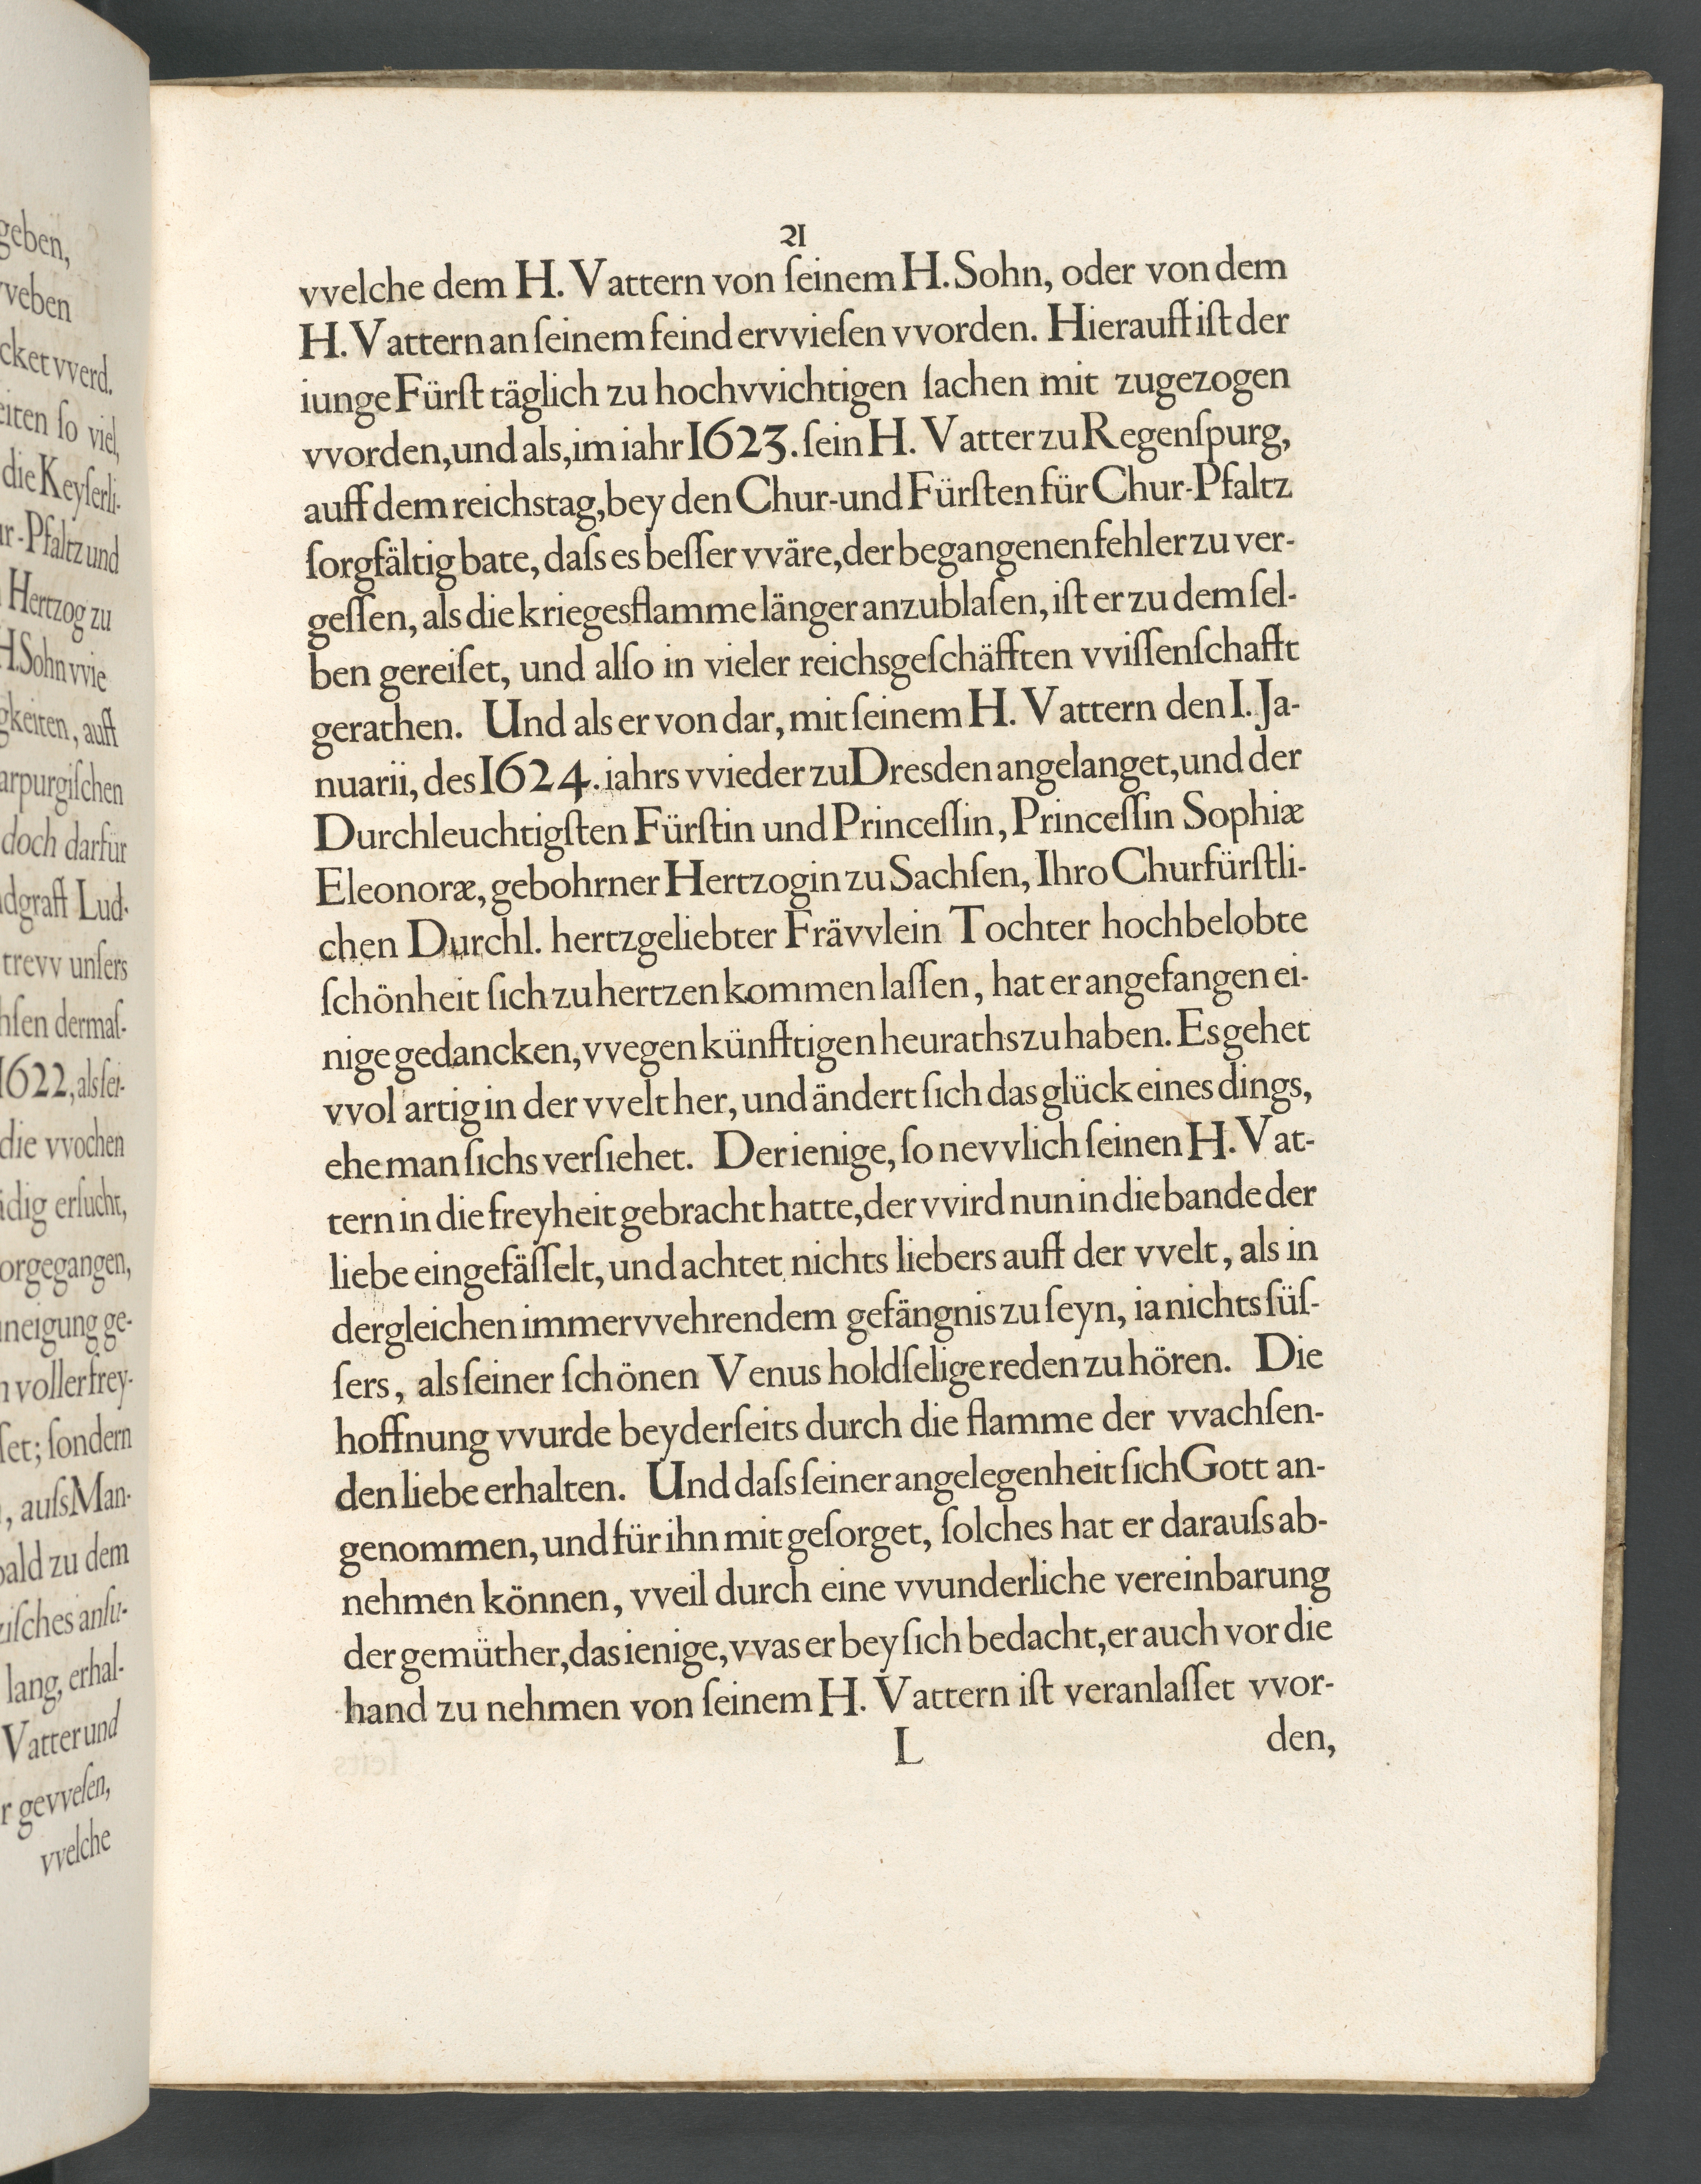 geben,
vveben
cket vverd.
eiten ſo viel,
die Keyſerli-
ur-Pfaltz und
Hertzog zu
H. Sohn vvie
gkeiten, auff
arpurgiſchen
doch darfür
ndgraff Lud-
trevv unſers
hſen dermaſ-
1622, als ſei-
die vvochen
ädig erſucht,
orgegangen,
neigung ge-
n voller frey-
ſet; ſondern
, auſs Man-
bald zu dem
ziſches anſu-
lang, erhal-
Vatter und
r gevveſen,
vvelche
21
vvelche dem H. Vattern von ſeinem H. Sohn, oder von dem
H. Vattern an ſeinem feind ervvieſen vvorden. Hierauff iſt der
iunge Fürſt täglich zu hochvvichtigen ſachen mit zugezogen
vvorden, und als, im iahr 1623. ſein H. Vatter zu Regenſpurg,
auff dem reichstag, bey den Chur-und Fürſten für Chur-Pfaltz
ſorgfältig bate, daſs es beſſer vväre, der begangenen fehler zu ver-
geſſen, als die kriegesflamme länger anzublaſen, iſt er zu dem ſel-
ben gereiſet, und alſo in vieler reichsgeſchäfften vviſſenſchafft
gerathen. Und als er von dar, mit ſeinem H. Vattern den I. Ja-
nuarii, des 1624. iahrs vvieder zu Dresden angelanget, und der
Durchleuchtigſten Fürſtin und Princeſſin, Princeſſin Sophiæ
Eleonoræ, gebohrner Hertzogin zu Sachſen, Ihro Churfürſtli-
chen Durchl. hertzgeliebter Frävvlein Tochter hochbelobte
ſchönheit ſich zu hertzen kommen laſſen, hat er angefangen ei-
nige gedancken, vvegen künfftigen heuraths zu haben. Es gehet
vvol artig in der vvelt her, und ändert ſich das glück eines dings,
ehe man ſichs verſiehet. Derienige, ſo nevvlich ſeinen H. Vat-
tern in die freyheit gebracht hatte, der vvird nun in die bande der
liebe eingefäſſelt, und achtet nichts liebers auff der vvelt, als in
dergleichen immervvehrendem gefängnis zu ſeyn, ia nichts ſüſ-
ſers, als ſeiner ſchönen Venus holdſelige reden zu hören. Die
hoffnung vvurde beyderſeits durch die flamme der vvachſen-
den liebe erhalten. Und daſs ſeiner angelegenheit ſich Gott an-
genommen, und für ihn mit geſorget, ſolches hat er darauſs ab-
nehmen können, vveil durch eine vvunderliche vereinbarung
der gemüther, das ienige, vvas er bey ſich bedacht, er auch vor die
hand zu nehmen von ſeinem H. Vattern iſt veranlaſſet vvor-
L den,